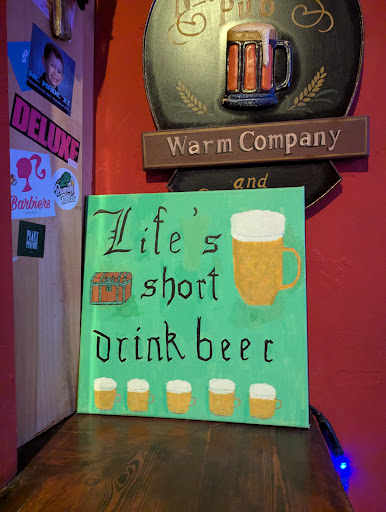 Pub
Warm Company
and
DELUXE
Barbiers
Life's
short
drink beer